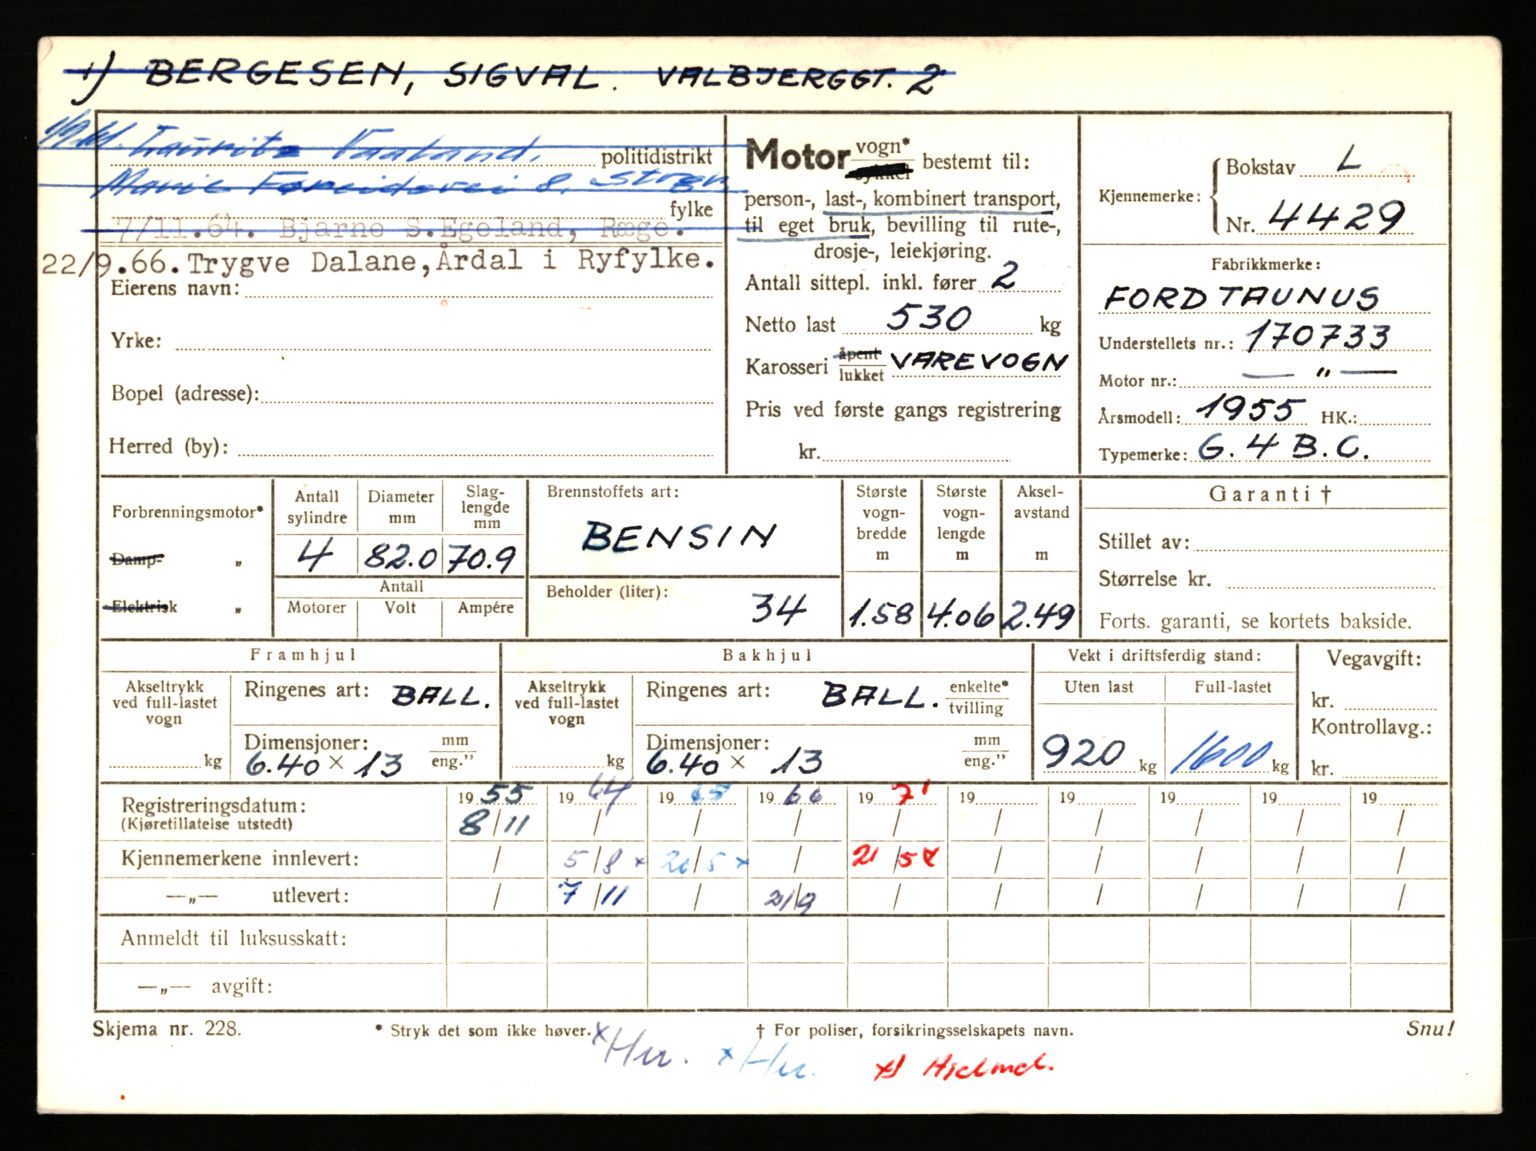 1) BERGESEN, SIGVAL. VALBJERGGT. 2
Lauritz Vaaland. politidistrikt
8. fylke
7/11.64. Bjarne S.Egeland, Ræge.
22/9.66. Trygve Dalane, Årdal i Ryfylke.
Eierens navn:
Yrke:
Bopel (adresse):
Herred (by):
Motor vogn* bestemt til:
person-, last-, kombinert transport,
til eget bruk, bevilling til rute-,
drosje-, leiekjøring.
Antall sittepl. inkl. fører 2
Netto last 530 kg
Karosseri åpent lukket VAREVOGN
Pris ved første gangs registrering
kr.
Kjennemerke: Bokstav L
Nr. 4429
Fabrikkmerke:
FORD TAUNUS
Understellets nr.: 170733
Motor nr.: — " —
Årsmodell: 1955 HK.:
Typemerke: G. 4 B.C.
Forbrenningsmotor*
Damp- "
Elektrisk "
Antall sylindre 4
Diameter mm 82.0
Slag-lengde mm 70.9
Antall
Motorer Volt Ampére
Brennstoffets art:
BENSIN
Beholder (liter): 34
Største vogn-bredde m 1.58
Største vogn-lengde m 4.06
Aksel-avstand m 2.49
Garanti †
Stillet av:
Størrelse kr.
Forts. garanti, se kortets bakside.
Framhjul
Akseltrykk ved full-lastet vogn kg
Ringenes art: BALL.
Dimensjoner: mm eng."
6.40 × 13
Bakhjul
Akseltrykk ved full-lastet vogn kg
Ringenes art: BALL. enkelte* tvilling
Dimensjoner: mm eng."
6.40 × 13
Vekt i driftsferdig stand:
Uten last Full-lastet
920 kg 1600 kg
Vegavgift:
kr.
Kontrollavg.:
kr.
Registreringsdatum: 1955 1964 1965 1966 1971 19 19 19 19 19
(Kjøretillatelse utstedt) 8/11 / / / / / / / / /
Kjennemerkene innlevert: / 5/8 x 21/5 x / 21/5 x / / / / /
—„— utlevert: / 7/11 / 21/9 / / / / / /
Anmeldt til luksusskatt:
—„— avgift:
Skjema nr. 228. * Stryk det som ikke høver. † For poliser, forsikringsselskapets navn. Snu!